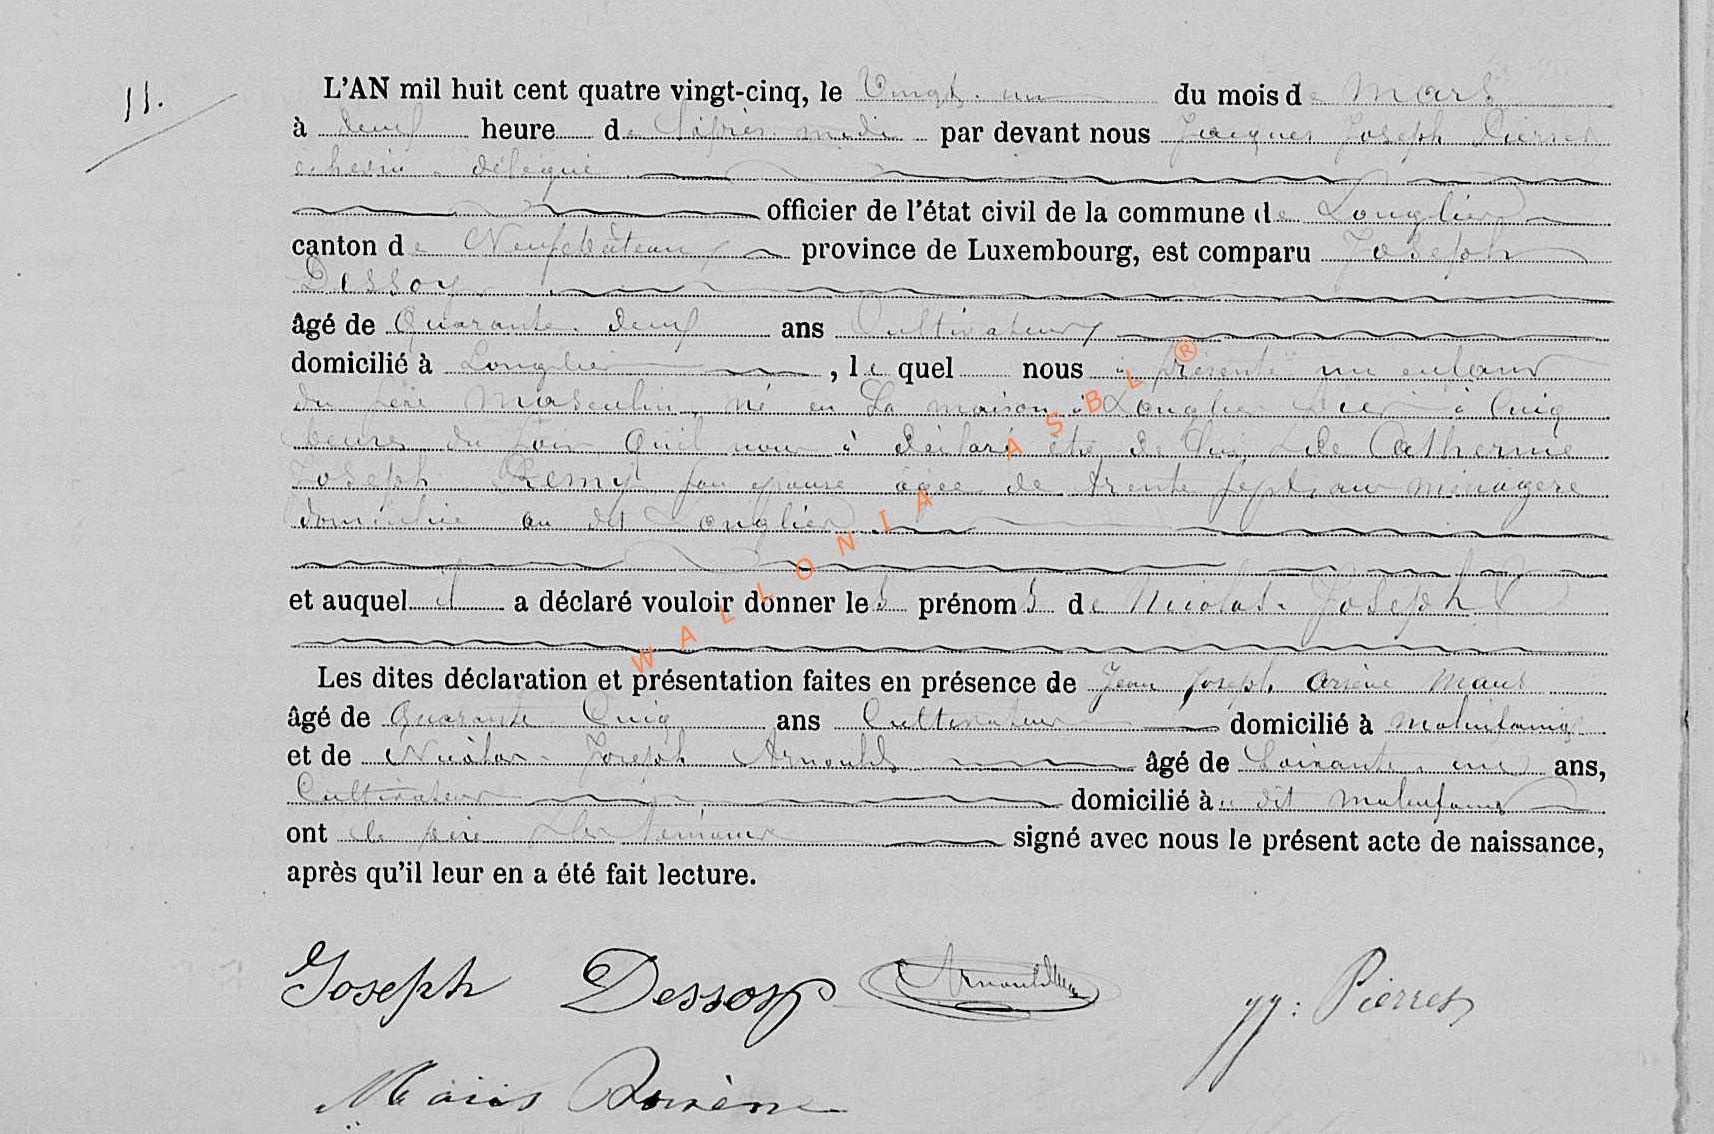 11.
L'AN mil huit cent quatre vingt-cinq, le Vingt-un du mois de Mars
à deux heure de l'après midi par devant nous Jacques Joseph Pierret
échevin délégué
officier de l'état civil de la commune de Longlier
canton de Neufchâteau province de Luxembourg, est comparu Joseph
Dessoy
âgé de Quarante-deux ans Cultivateur
domicilié à Longlier, le quel nous à présenté un enfant
du Masculin né en Sa maison à Longlier hier à Cinq
heures du Soir qu'il nous à déclaré être de lui & de Catherine
Joseph Remy son épouse âgée de trente sept ans ménagère
domiciliée au dit Longlier
et auquel il a déclaré vouloir donner les prénoms de Nicolas Joseph
Les dites déclaration et présentation faites en présence de Jean Joseph Arsène Maus
âgé de Quarante Cinq ans Cultivateur domicilié à Molinfaing
et de Nicolas Joseph Arnould âgé de Soixante-un ans,
Cultivateur domicilié à dit Molinfaing
ont le père & les témoins signé avec nous le présent acte de naissance,
après qu'il leur en a été fait lecture.
Joseph Dessoy Arnould JJ: Pierret
Maus Arsène
WALLONIA ASBL ®